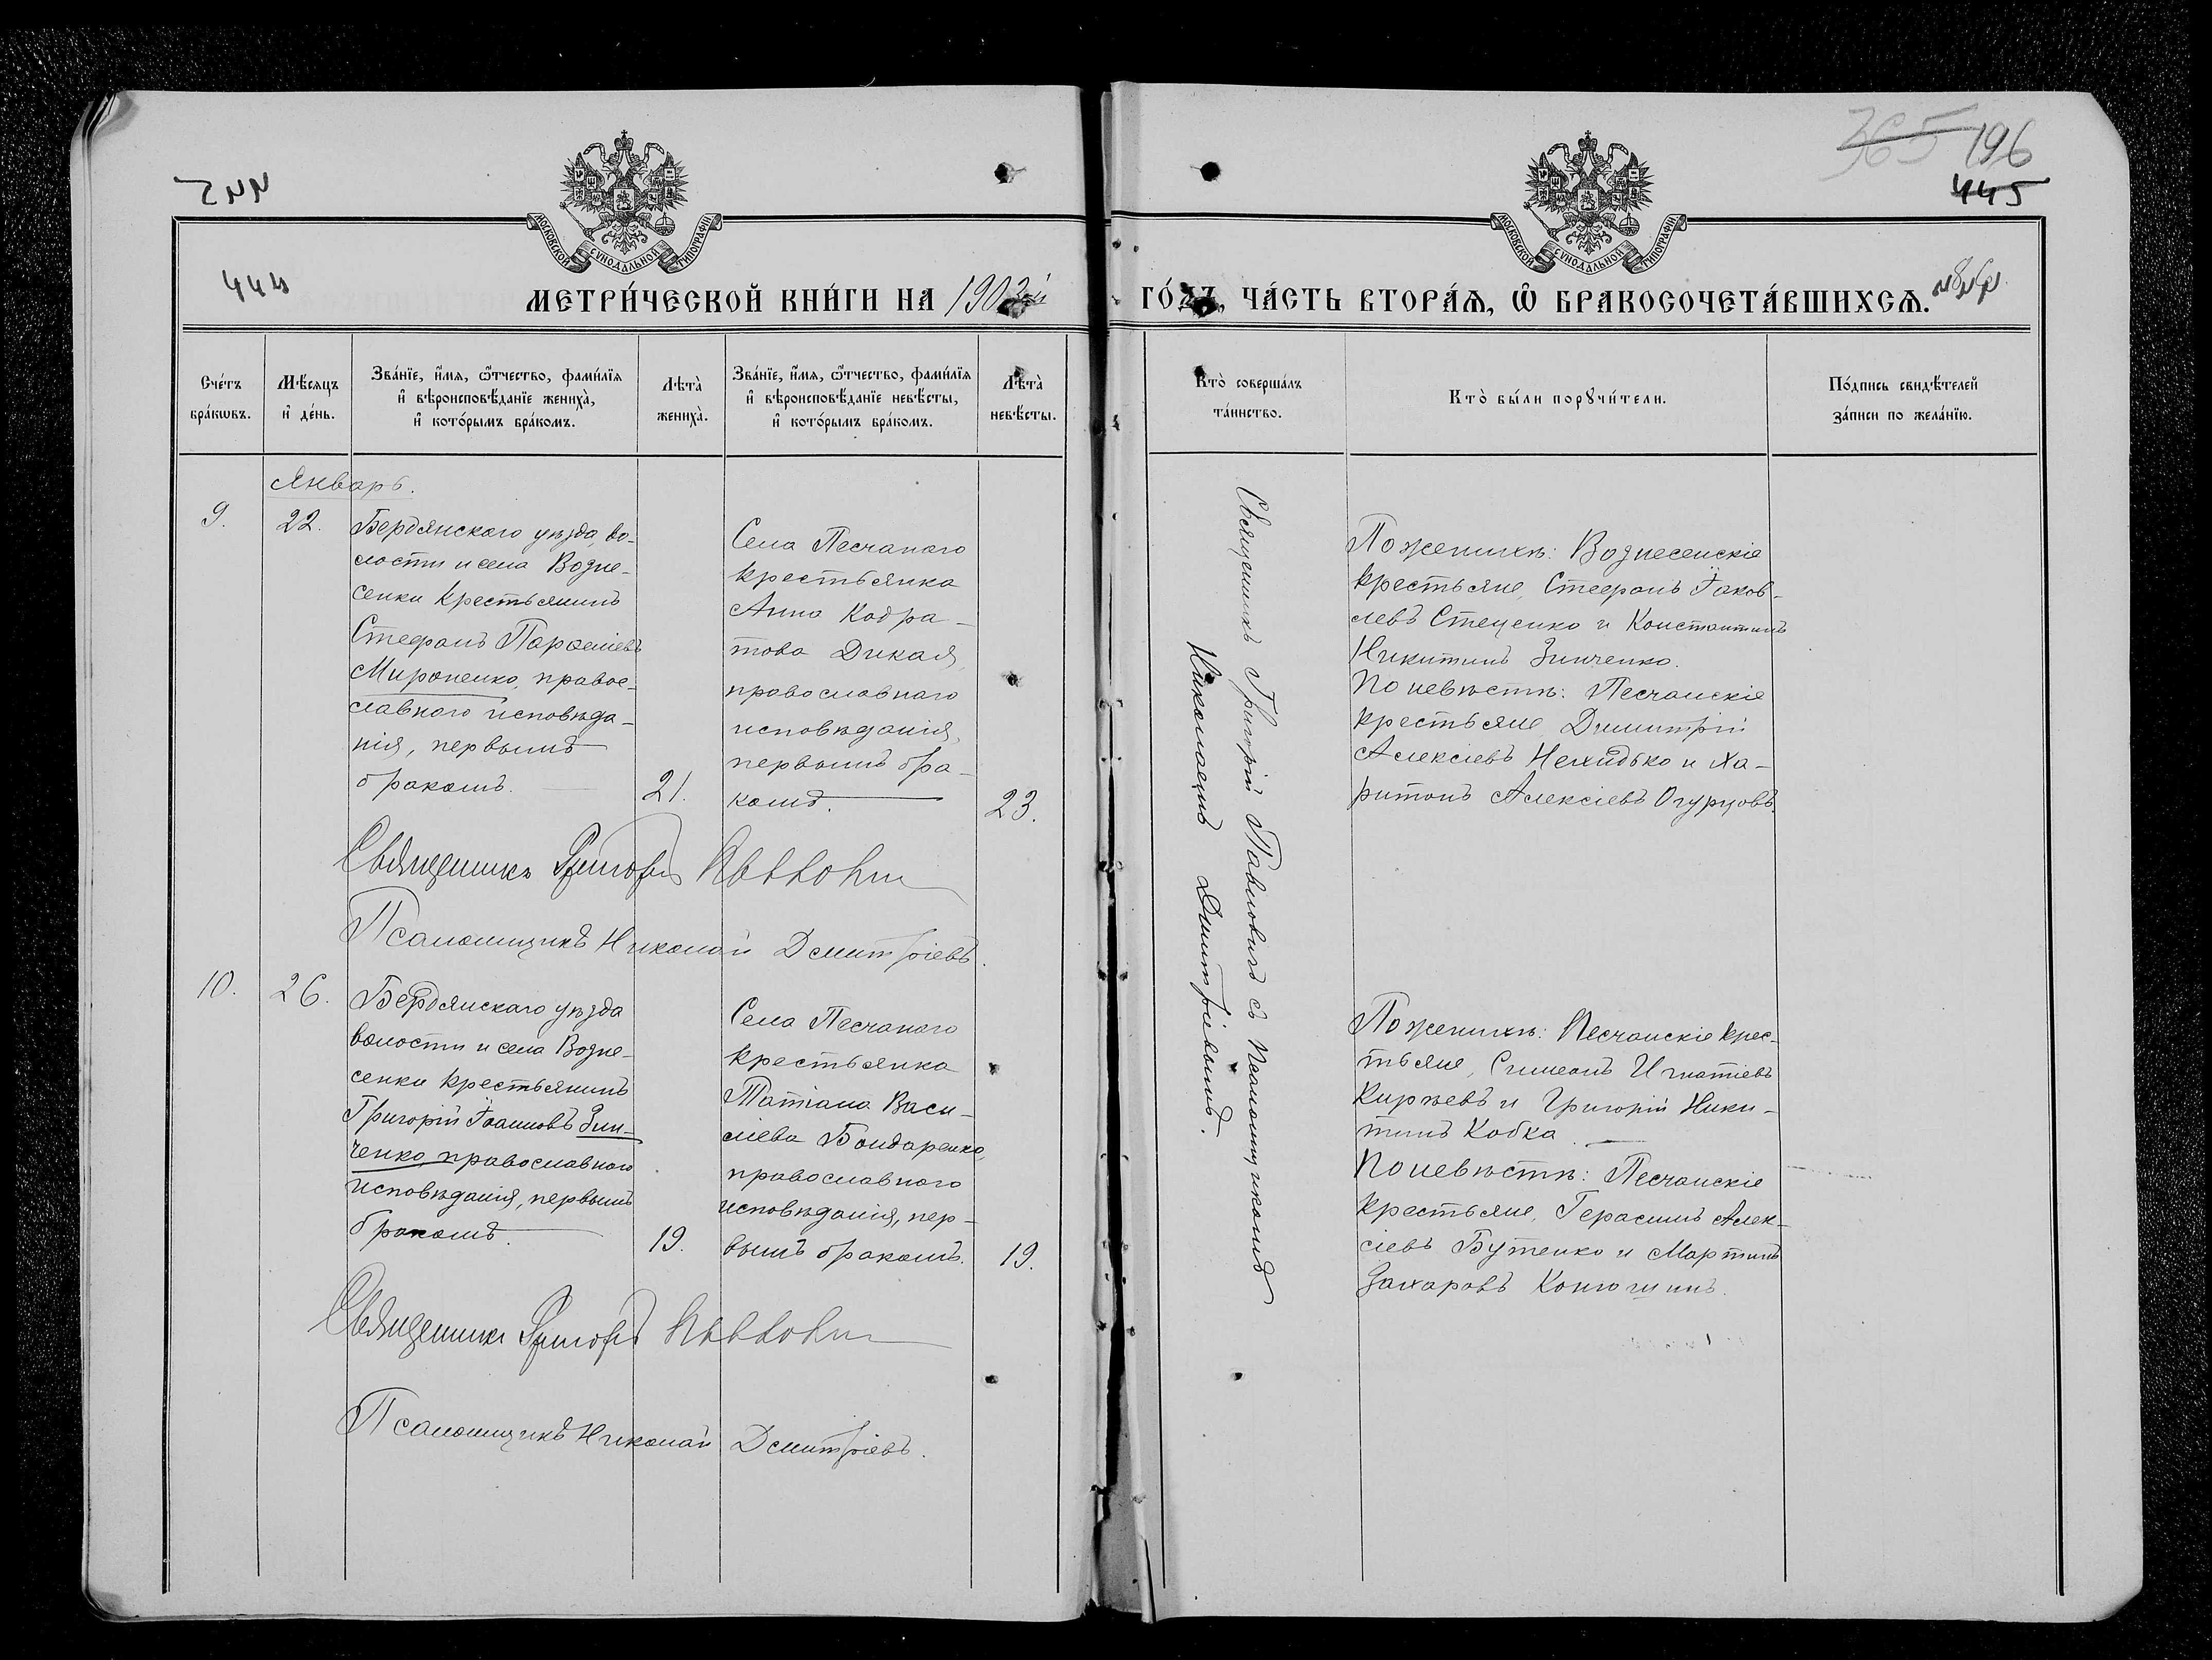 365 196
445
444
МОСКОВСКОЙ СѴНОДАЛЬНОЙ ТИПОГРАФІИ
МОСКОВСКОЙ СѴНОДАЛЬНОЙ ТИПОГРАФІИ
МЕТРИ́ЧЕСКОЙ КНИ́ГИ НА 1903й
ГО́ДЪ, ЧА́СТЬ ВТОРА́Ѧ, Ѡ҆ БРАКОСОЧЕТА́ВШИХСѦ.
Сче́тъ бра́кѡвъ.
Мѣ́сяцъ и҆ де́нь.
Зва́нїе, и҆́мѧ, ѻ҆́тчество, фами́лїѧ
и҆ вѣроисповѣ́данїе жениха̀,
и҆ кото́рымъ бра́комъ.
Лѣта̀ жениха̀.
Зва́нїе, и҆́мѧ, ѻ҆́тчество, фами́лїѧ
и҆ вѣроисповѣ́данїе невѣ́сты,
и҆ кото́рымъ бра́комъ.
Лѣта̀ невѣ́сты.
Кто̀ соверша́лъ
та́инство.
Кто̀ бы́ли порꙋчи́тели.
По́дпись свидѣ́телей
за́писи по жела́нїю.
Январь.
9.
22.
Бердянскаго уѣзда, во-
лости и села Возне-
сенки крестьянинъ
Стефанъ Парѳеніевъ
Мироненко, право-
славнаго исповѣда-
нія, первымъ
бракомъ.
21.
Села Песчанаго
крестьянка
Анна Кодра-
това Дикая,
православнаго
исповѣданія,
первымъ бра-
комъ.
23.
Священникъ Григорій Павловичъ съ псаломщикомъ
Николаемъ Димитріевымъ.
По женихѣ: Вознесенскіе
крестьяне, Стефанъ Іаков-
левъ Стеценко и Константинъ
Никитинъ Зинченко.
По невѣстѣ: Песчанскіе
крестьяне Димитрій
Алексіевъ Нехидько и Ха-
ритонъ Алексіевъ Огурцовъ.
Священникъ Григорій Павловичъ
Псаломщикъ Николай Дмитріевъ.
10.
26.
Бердянскаго уѣзда
волости и села Возне-
сенки крестьянинъ
Григорій Іоанновъ Зин-
ченко, православнаго
исповѣданія, первымъ
бракомъ.
19.
Села Песчанаго
крестьянка
Татіана Васи-
ліева Бондаренко,
православнаго
исповѣданія, пер-
вымъ бракомъ.
19.
По женихѣ: Песчанскіе крес-
тьяне, Симеонъ Игнатіевъ
Кирѣевъ и Григорій Ники-
тинъ Кобка.
По невѣстѣ: Песчанскіе
крестьяне, Герасимъ Алек-
сіевъ Бутенко и Мартинъ
Захаровъ Конюшинъ.
Священникъ Григорій Павловичъ
Псаломщикъ Николай Дмитріевъ.